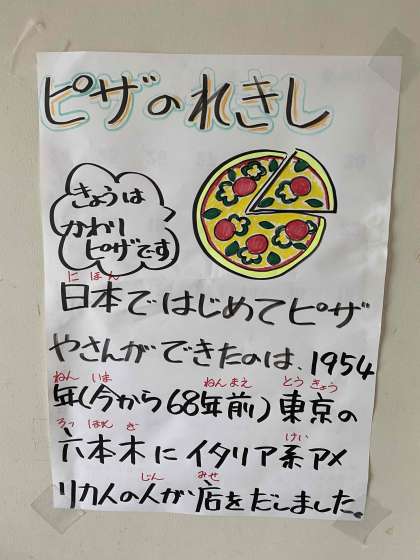 ピザのれきし
きょうは
かわり
ピザです
にほん
日本ではじめてピザ
やさんができたのは、1954
ねん いま ねんまえ とうきょう
年(今から68年前)東京の
ろっぽんぎ けい
六本木にイタリア系アメ
じん みせ
リカ人の人が店をだしました。